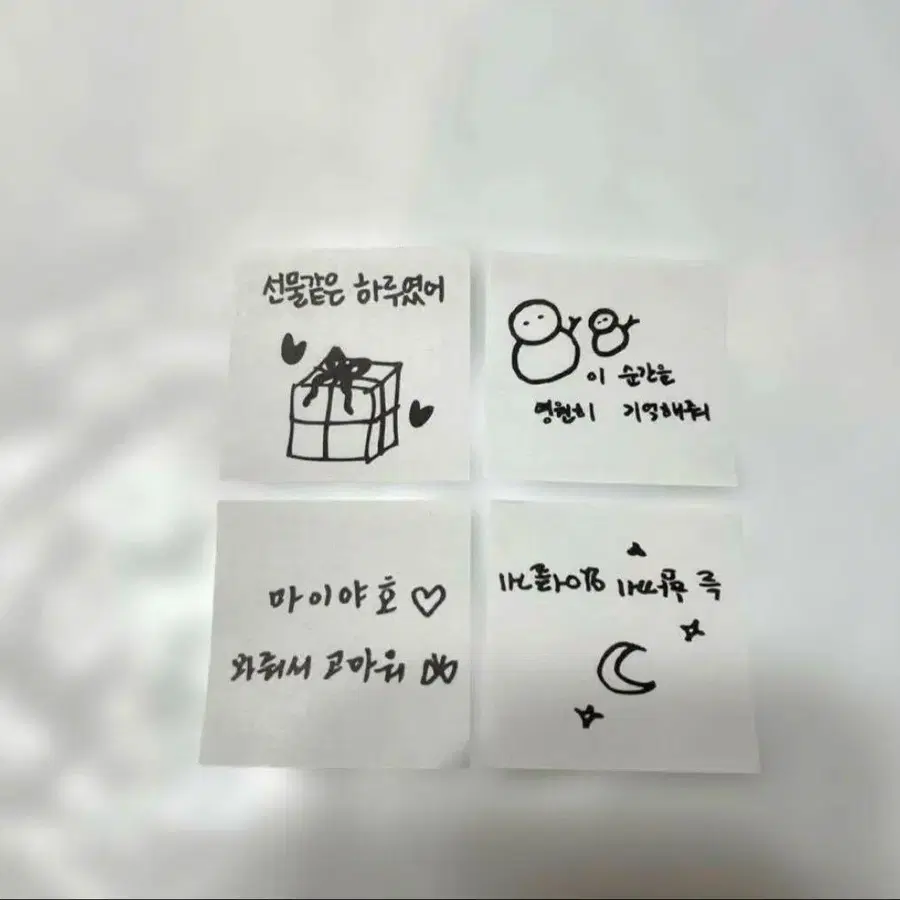 선물같은 하루였어
이 순간을
영원히 기억해줘
마이야호♡
와줘서 고마워